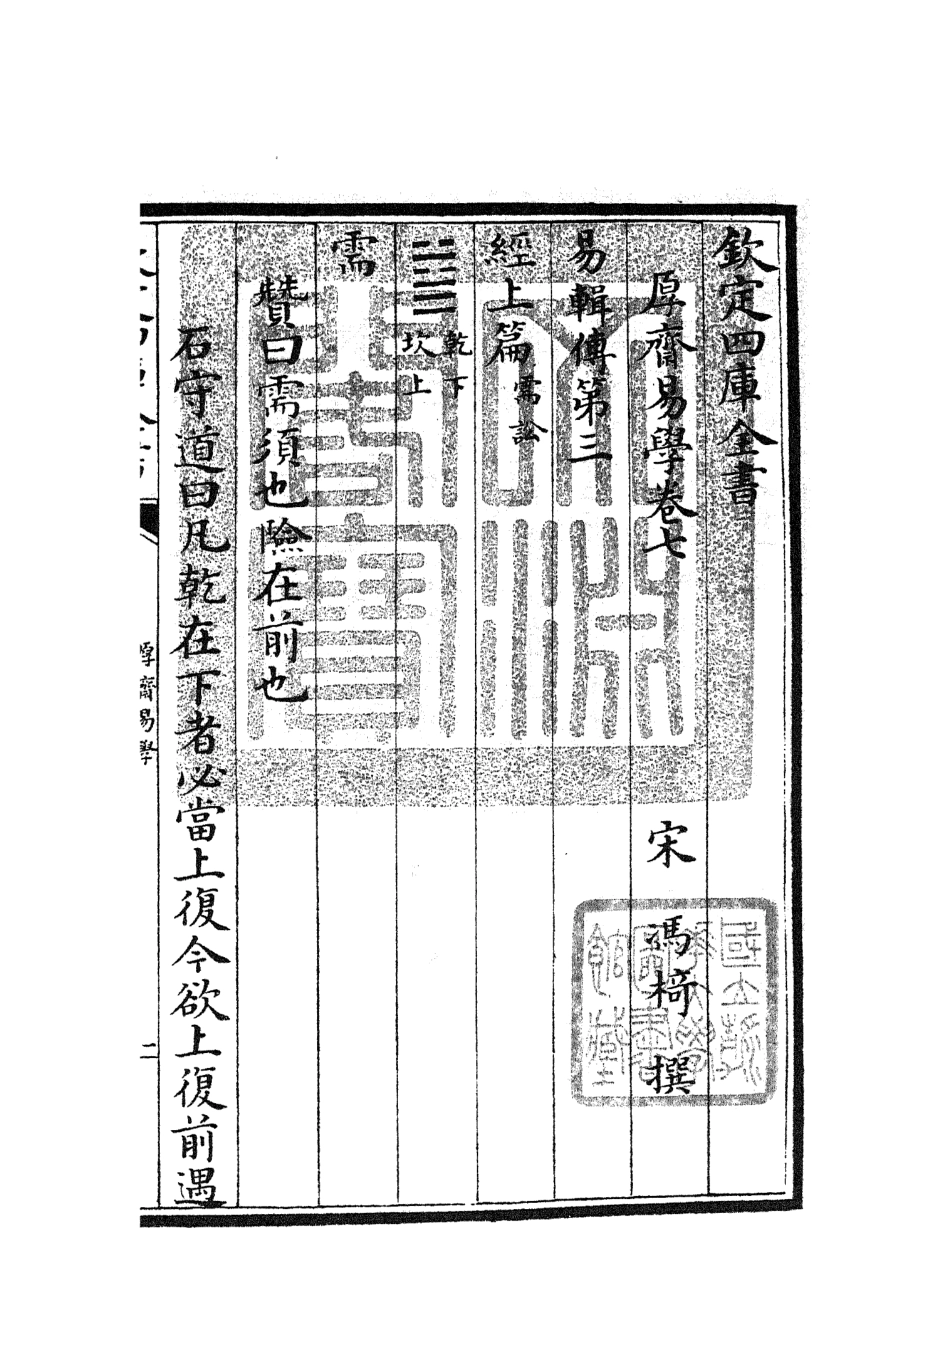 欽定四庫全書
厚齋易學卷七
宋 馮椅 撰
易輯傳第三
經上篇 需 訟
䷄ 乾下 坎上
需
贊曰需須也險在前也
石守道曰凡乾在下者必當上復今欲上復前遇
厚齋易學